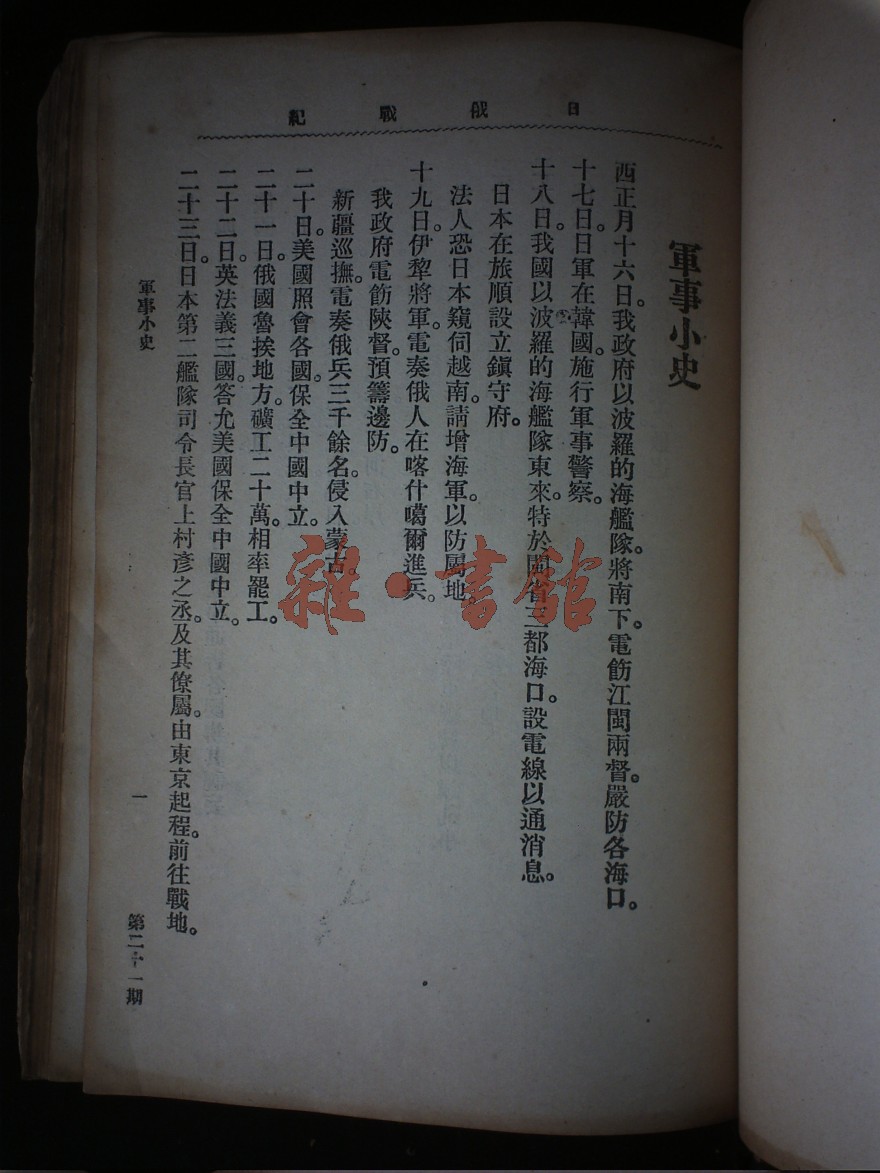 日俄戰紀
軍事小史
西正月十六日。我政府以波羅的海艦隊。將南下。電飭江閩兩督。嚴防各海口。
十七日。日軍在韓國。施行軍事警察。
十八日。我國以波羅的海艦隊東來。特於閩省三都海口。設電線以通消息。
日本在旅順設立鎮守府。
法人恐日本窺伺越南。請增海軍。以防屬地。
十九日。伊犂將軍。電奏俄人在喀什噶爾進兵。
我政府電飭陝督。預籌邊防。
新疆巡撫。電奏俄兵三千餘名。侵入蒙古。
二十日。美國照會各國。保全中國中立。
二十一日。俄國魯挨地方。礦工二十萬。相率罷工。
二十二日。英法義三國。答允美國保全中國中立。
二十三日。日本第二艦隊司令長官上村彥之丞。及其僚屬。由東京起程。前往戰地。
軍事小史
一
第二十一期
雜·書館